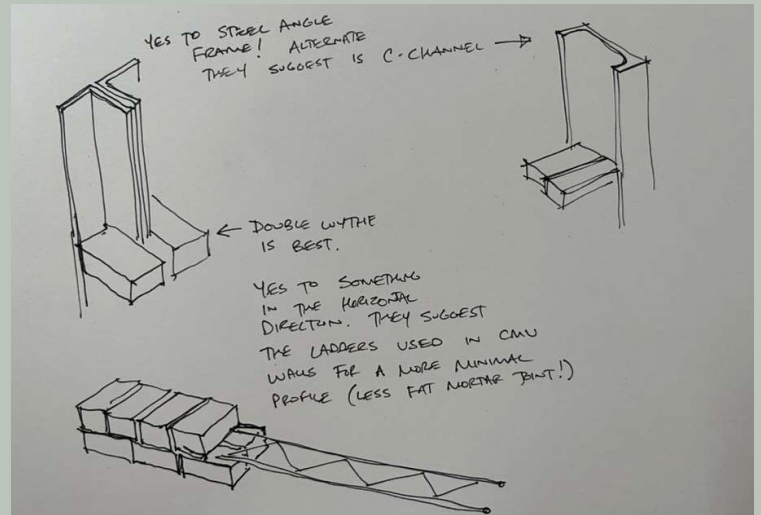 YES TO STEEL ANGLE
FRAME! ALTERNATE
THEY SUGGEST IS C-CHANNEL
DOUBLE WYTHE
IS BEST.
YES TO SOMETHING
IN THE HORIZONTAL
DIRECTION. THEY SUGGEST
THE LADDERS USED IN CMU
WALLS FOR A MORE MINIMAL
PROFILE (LESS FAT MORTAR JOINT!)